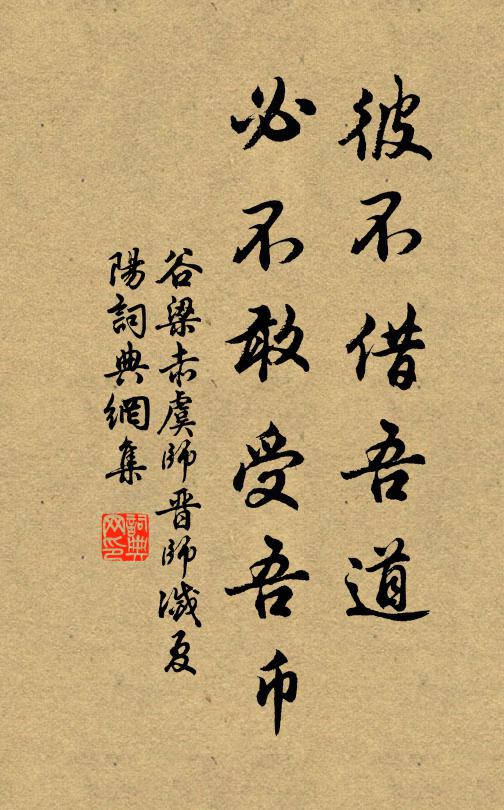 彼不借吾道
必不敢受吾币
谷梁赤虞師晋師滅夏
陽詞典網集
詞典
网印